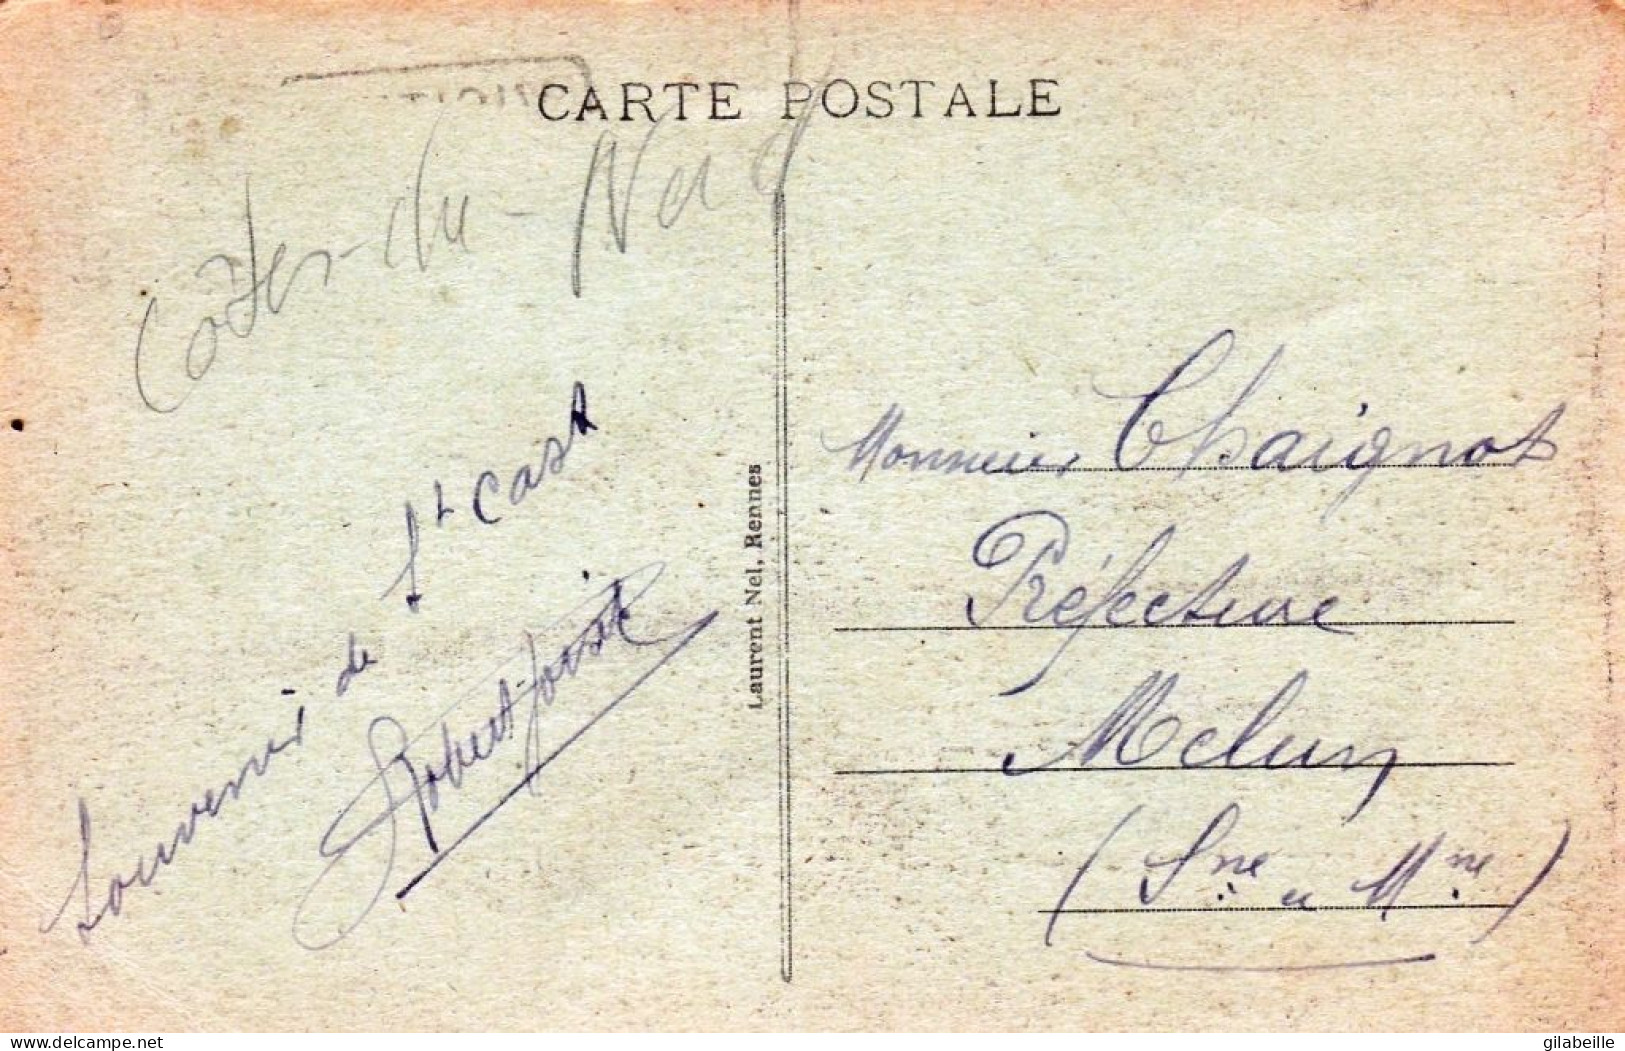 CARTE POSTALE
Côtes-du-Nord
Souvenir de St Cast
Robert
Laurent Nel, Rennes
Monsieur Chaignot
Préfecture
Melun
(Sne et Mne)
delcampe.net
gilabeille